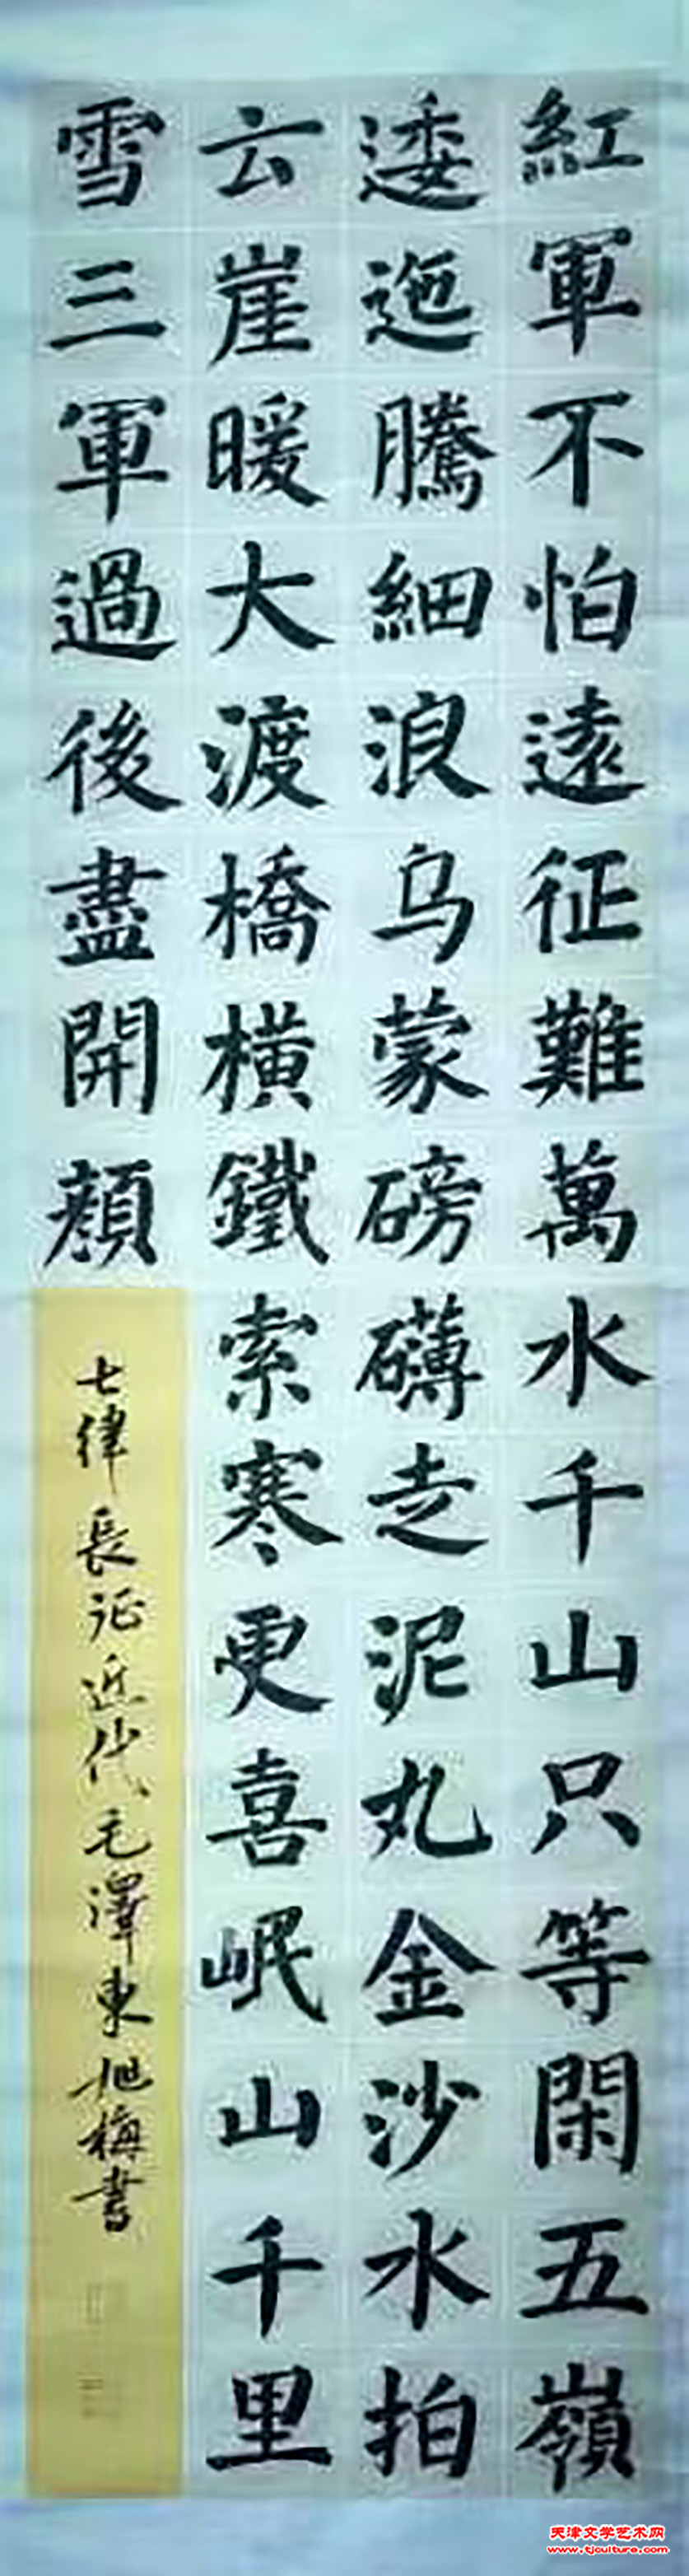 紅軍不怕遠征難萬水千山只等閑五嶺
逶迤騰細浪乌蒙磅礴走泥丸金沙水拍
云崖暖大渡橋橫鐵索寒更喜岷山千里
雪三軍過後盡開顏
七律長征近代毛澤東旭梅書
天津文学艺术网
www.tjculture.com